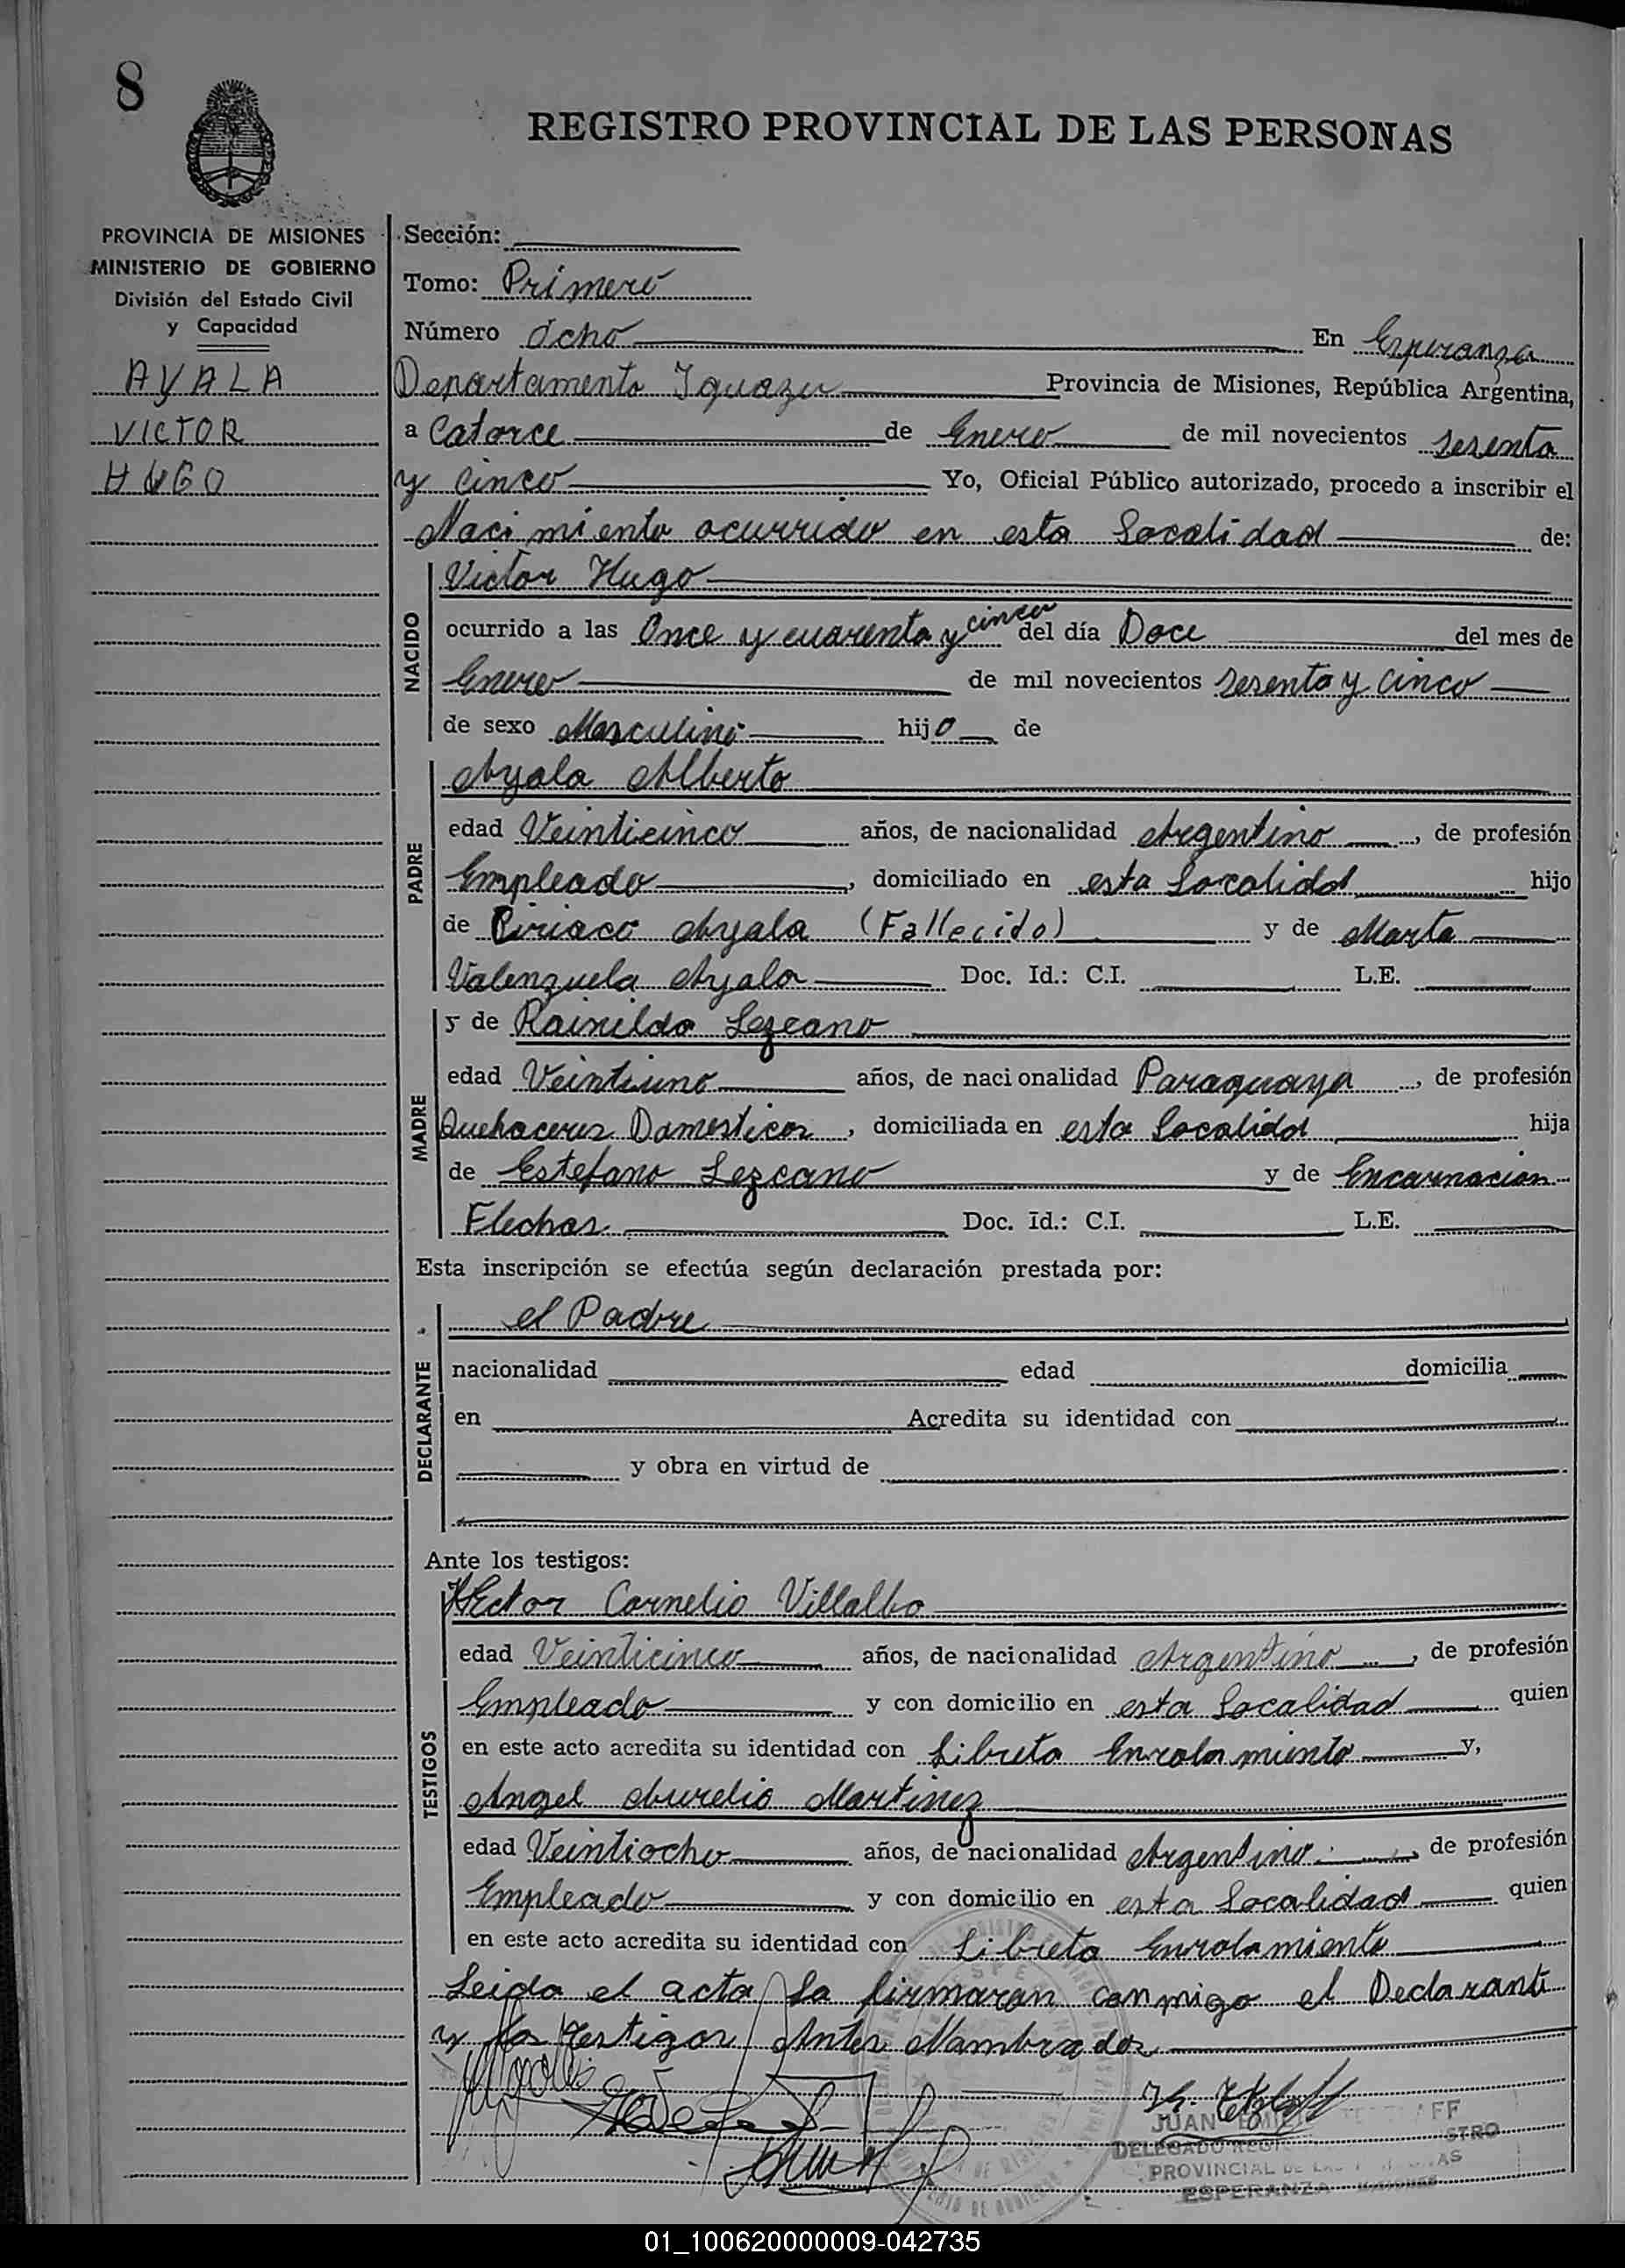 8
REGISTRO PROVINCIAL DE LAS PERSONAS
PROVINCIA DE MISIONES
MINISTERIO DE GOBIERNO
División del Estado Civil
y Capacidad
AYALA
VICTOR
HUGO
Sección:
Tomo: Primero
Número Ocho En Esperanza
Departamento Iguazu Provincia de Misiones, República Argentina,
a Catorce de Enero de mil novecientos sesenta
y cinco Yo, Oficial Público autorizado, procedo a inscribir el
Nacimiento ocurrido en esta Localidad de:
NACIDO
Victor Hugo
ocurrido a las Once y cuarenta y cinco del día Doce del mes de
Enero de mil novecientos sesenta y cinco
de sexo Masculino hijo de
PADRE
Ayala Alberto
edad Veinticinco años, de nacionalidad Argentino, de profesión
Empleado, domiciliado en esta Localidad hijo
de Ciriaco Ayala (Fallecido) y de Marta
Valenzuela Ayala Doc. Id.: C.I. L.E.
MADRE
y de Rainilda Lezcano
edad Veintiuno años, de nacionalidad Paraguaya, de profesión
Quehaceres Domesticos, domiciliada en esta Localidad hija
de Estefano Lezcano y de Encarnacion
Flechas Doc. Id.: C.I. L.E.
Esta inscripción se efectúa según declaración prestada por:
DECLARANTE
el Padre
nacionalidad edad domicilia
en Acredita su identidad con
y obra en virtud de
Ante los testigos:
TESTIGOS
Hector Cornelio Villalba
edad Veinticinco años, de nacionalidad Argentino, de profesión
Empleado y con domicilio en esta Localidad quien
en este acto acredita su identidad con Libreta Enrolamiento y,
Angel Aurelio Martinez
edad Veintiocho años, de nacionalidad Argentino, de profesión
Empleado y con domicilio en esta Localidad quien
en este acto acredita su identidad con Libreta Enrolamiento
Leida el acta La firmaran conmigo el Declarante
y los Testigos Antes Nombrados
JUAN
DELEGADO
PROVINCIAL DE
ESPERANZA
01_100620000009-042735